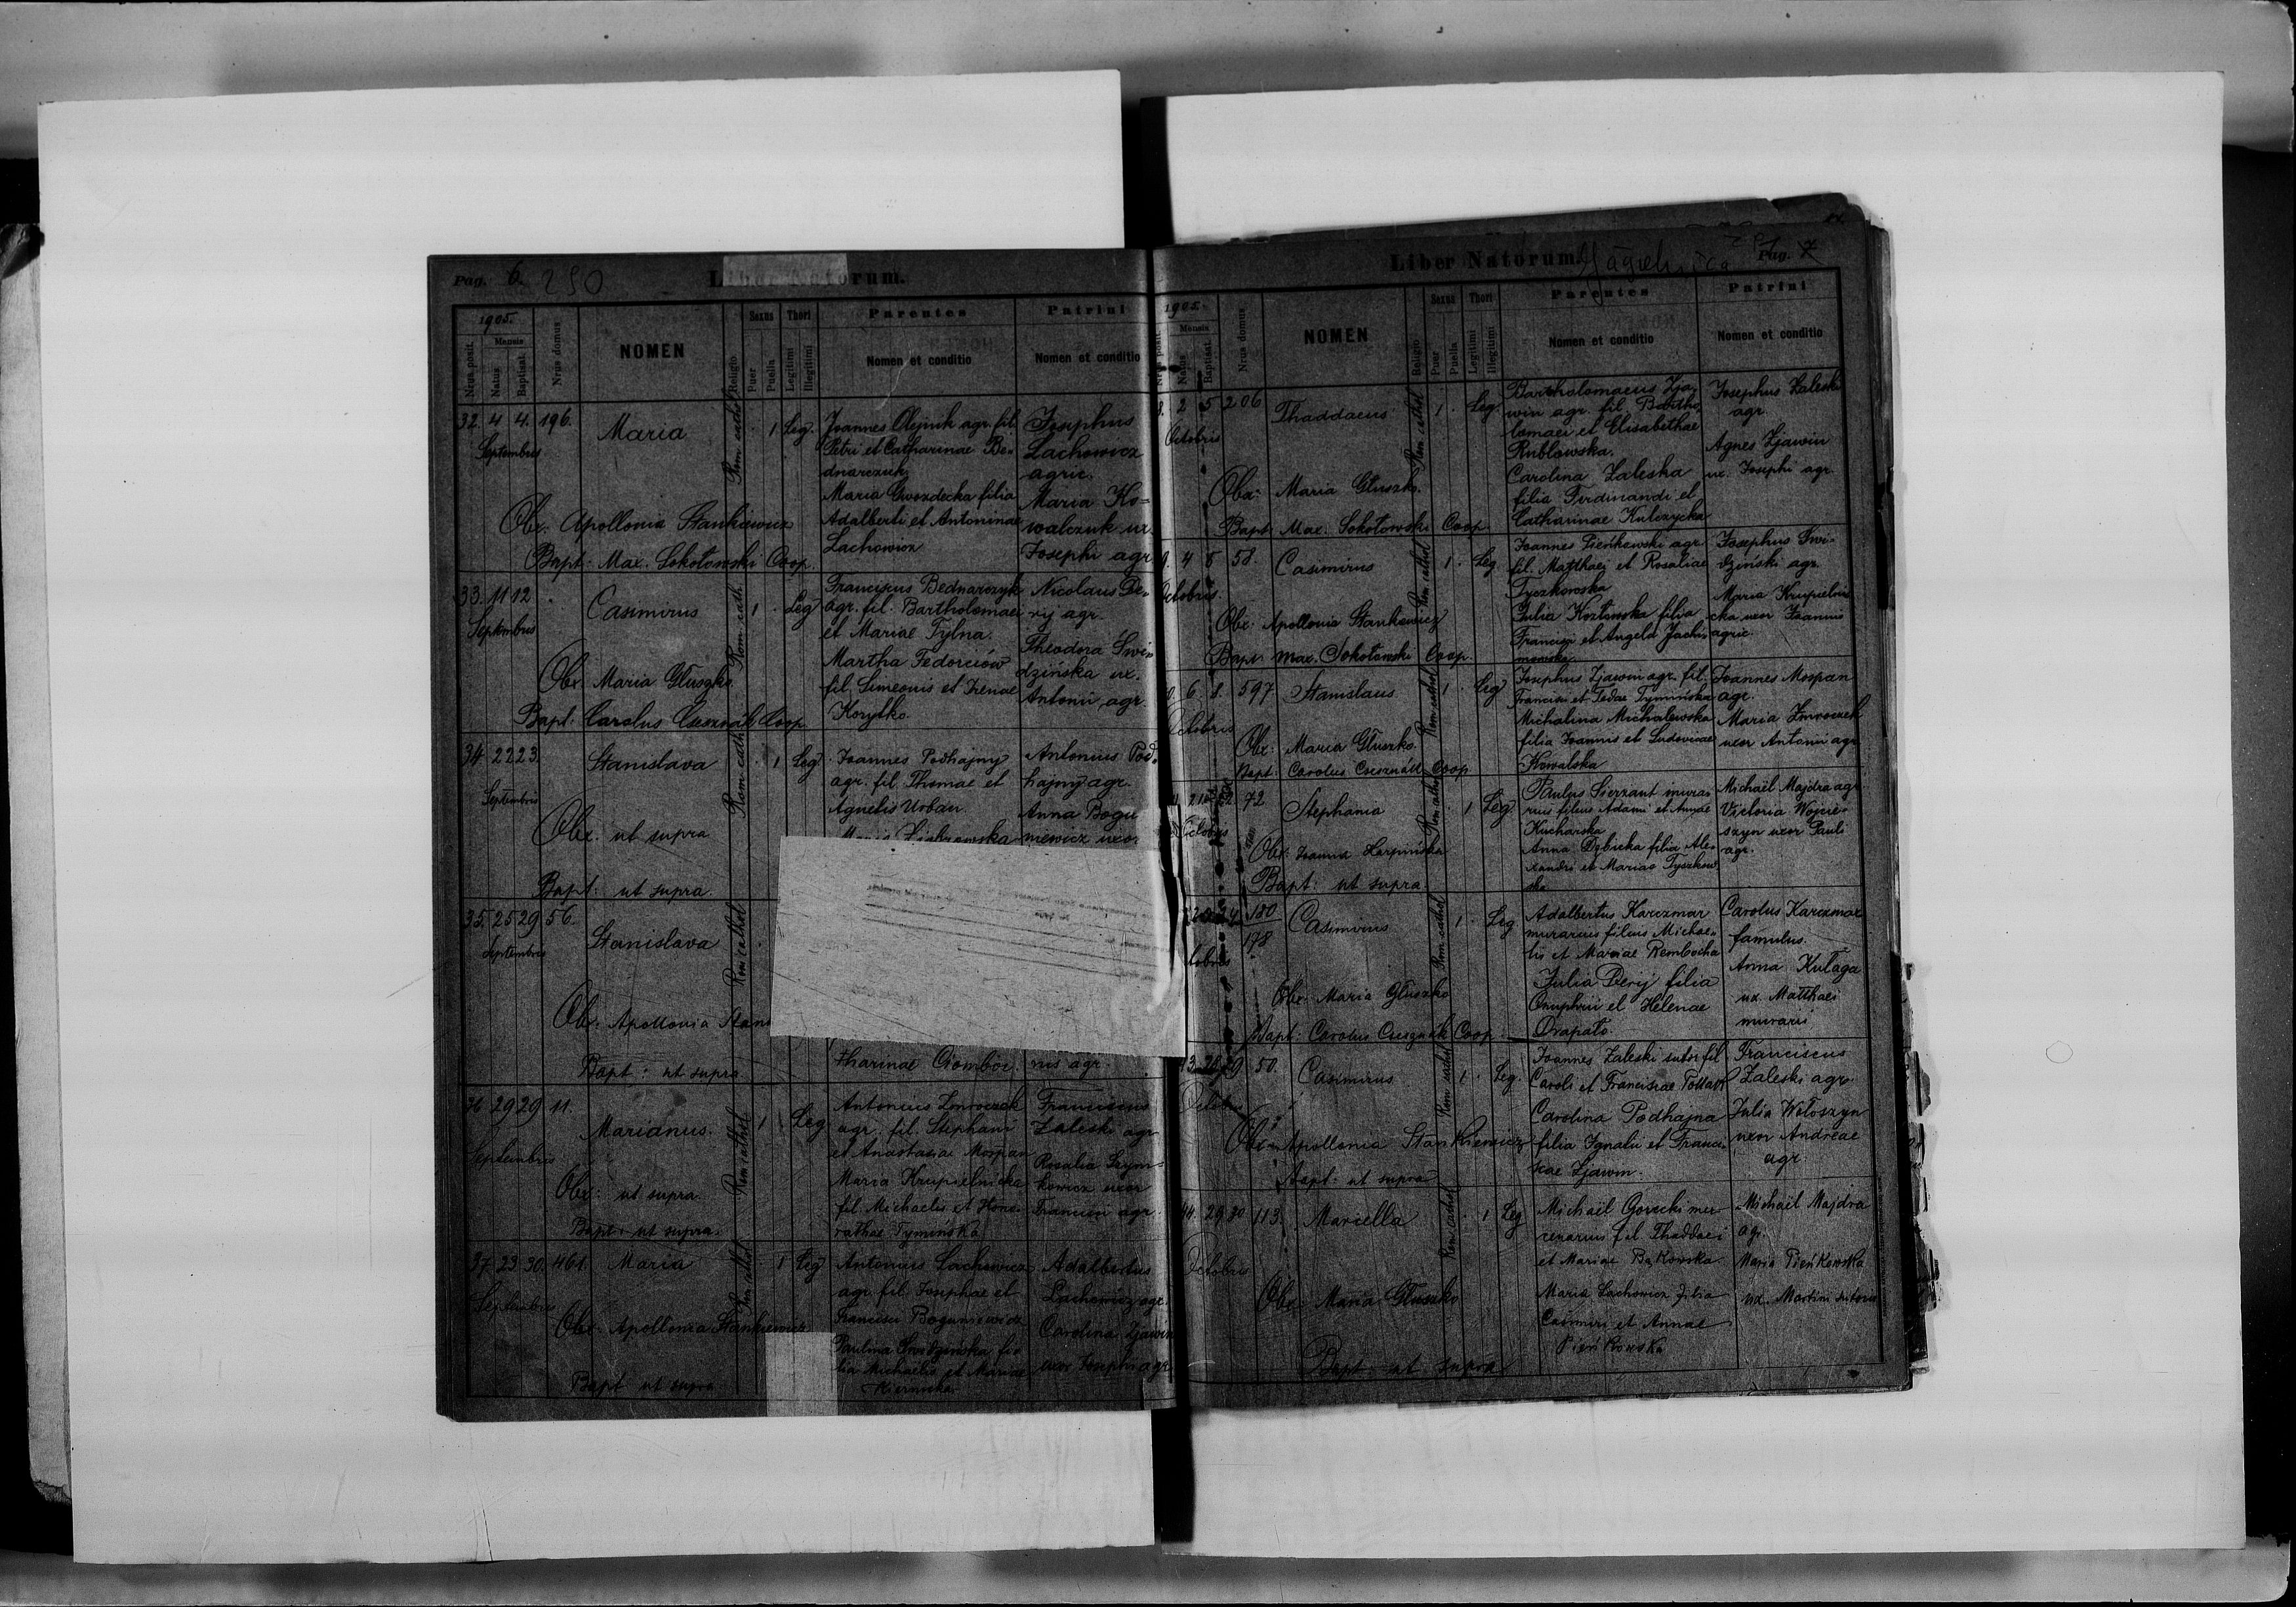 Pag. 6. 290
Liber Natorum.
1905.
Nrus posit.
Mensis
Natus
Baptisat.
Nrus domus
NOMEN
Religio
Sexus
Puer
Puella
Thori
Legitimi
Illegitimi
Parentes
Nomen et conditio
Patrini
Nomen et conditio
32. 4 4. 196. Maria Rom. cathol. 1 Leg.
Septembris
Joannes Olejnik agr. fil.
Petri et Catharinae Be-
dnarczuk
Maria Gwozdecka filia
Adalberti et Antoninae
Lachowicz
Josephus
Lachowicz
agric.
Maria Ko-
walczuk ux.
Josephi agr.
Obs. Apollonia Stankiewicz
Bapt: Max. Sokołowski Coop.
33. 11 12 Casimirus Rom. cath. 1 Leg
Septembris
Franciscus Bednarczyk
agr. fil. Bartholomaei
et Mariae Tylna.
Martha Fedorciów
fil. Simeonis et Irenae
Korytko.
Nicolaus De-
rij agr.
Theodora Swi-
dzińska ux.
Antonii agr.
Obs. Maria Głuszko.
Bapt: Carolus Ciesznák Coop.
34 22 23. Stanislava Rom. cath. 1 Leg
Septembris
Joannes Podhajny
agr. fil. Thomae et
Agnetis Urban.
Antonius Pod-
hajny agr.
Anna Bogu
niewicz uxo.
Obs. ut supra
Bapt: ut supra.
35. 25 29 56. Stanislava Rom cathol
Septembris
Obs. Apollonia Stan
Bapt: ut supra
tharinae Gomboi. nis agr.
36 29 29 11. Marianus. Rom cathol 1 Leg
Septembris
Antonius Zmroczek
agr. fil. Stephani
et Anastasia Mospan
Maria Krupielnicka
fil Michaelis et Hono-
rathae Tymińska
Franciscus
Zaleski agr
Rosalia Szym-
kowicz uxor
Francisci agr.
Obs: ut supra.
Bapt: ut supra.
37. 23 30. 461. Maria Rom cathol 1 Leg
Septembris
Antonius Lachowicz
agr. fil. Josephae et
Francisci Boguniewicz
Paulina Swidzińska fi-
lia Michaelis et Mariae
Adalbertus
Lachowicz agr.
Carolina Zjawin
uxor Josephi agr
Obs. Apollonia Stankiewicz
Bapt ut supra
Liber Natorum.
Pag. 7
1905.
Mensis
Natus
Baptisat.
Nrus domus
NOMEN
Religio
Sexus
Puer
Puella
Thori
Legitimi
Illegitimi
Parentes
Nomen et conditio
Patrini
Nomen et conditio
8. 2 5 206 Thaddaeus Rom. cathol 1. Leg.
Octobris
Bartholomaeus Zja
win agr. fil. Bartho
lomaei et Elisabethae
Rublowska.
Carolina Zaleska
filia Ferdinandi et
Catharinae Kulczycka
Josephus Zaleski
agr.
Agnes Zjawin
ux. Josephi agr.
Obs: Maria Głuszko.
Bapt: Max. Sokołowski Coop
9. 4 8 58. Casimirus Rom. cathol 1. Leg.
Octobris.
Joannes Pieńkowski agr.
fil. Matthaei et Rosaliae
Tyszkowska
Julia Kozłowska filia
Francisci et Angela Jachi
mowska
Josephus Swi-
dziński agr.
Maria Krupielni
cka uxor Joannis
agric.
Obs: Apollonia Stankiewicz
Bapt: Max. Sokołowski Coop.
6. 8. 597 Stanislaus Rom cathol 1. Leg
Octobris
Josephus Zjawin agr. fil.
Francisci et Teclae Tymińska
Michalina Michalewska
filia Joannis et Ludovicae
Kowalska
Joannes Mospan
agr.
Maria Zmroczek
uxor Antonii agr
Obs: Maria Głuszko.
Bapt: Carolus Ciesznák Coop
72 Stephania Rom cathol 1 Leg
Octobris
Paulus Sierzant mura-
rius filius Adami et Annae
Kucharska
Anna Dębicka filia Ale-
xandri et Mariae Tyszkow
ska
Michaël Majdra agr
Victoria Wojcie-
szyn uxor Pauli
agr.
Obs: Joanna Karpińska
Bapt: ut supra
180
178
Casimirus Rom. cathol 1. Leg
Adalbertus Karczmar
murarius filius Michae-
lis et Mariae Rembocha
Julia Derij filia
Onuphrii et Helenae
Drapato.
Carolus Karczmar
famulus.
Anna Kułaga
ux. Matthaei
murarii
Obs. Maria Głuszko
Bapt: Carolus Ciesznák Coop.
43. 28 29 50. Casimirus Rom cathol 1. Leg.
Octobris
Joannes Zaleski sutor fil
Caroli et Franciscae Pollak
Carolina Podhajna
filia Ignatii et Franci-
scae Zjawin.
Franciscus
Zaleski agr.
Julia Wołoszyn
uxor Andreae
agr.
Obs. Apollonia Stankiewicz
Bapt: ut supra
44. 29 30 113. Mariella Rom cathol 1 Leg
Octobris
Michaël Gorecki mer-
cenarius fil Thaddaei
et Mariae Bąkowska
Maria Lachowicz filia
Casimiri et Annae
Pieńkowska
Michaël Majdra
agr.
Maria Pieńkowska
ux. Martini sutoris
Obs. Maria Głuszko
Bapt ut supra